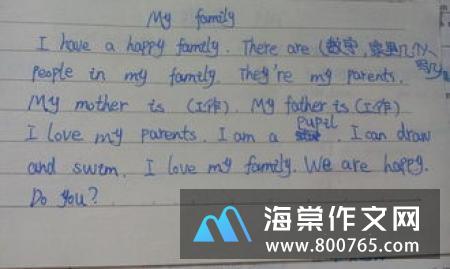 My family
I have a happy family. There are (数字,家里几个人
写几)
people in my family. They're my parents.
My mother is (工作). My father is (工作)
pupil
I love my parents. I am a . I can draw
and swim. I love my family. We are happy.
Do you?
海棠作文网
www.800765.com